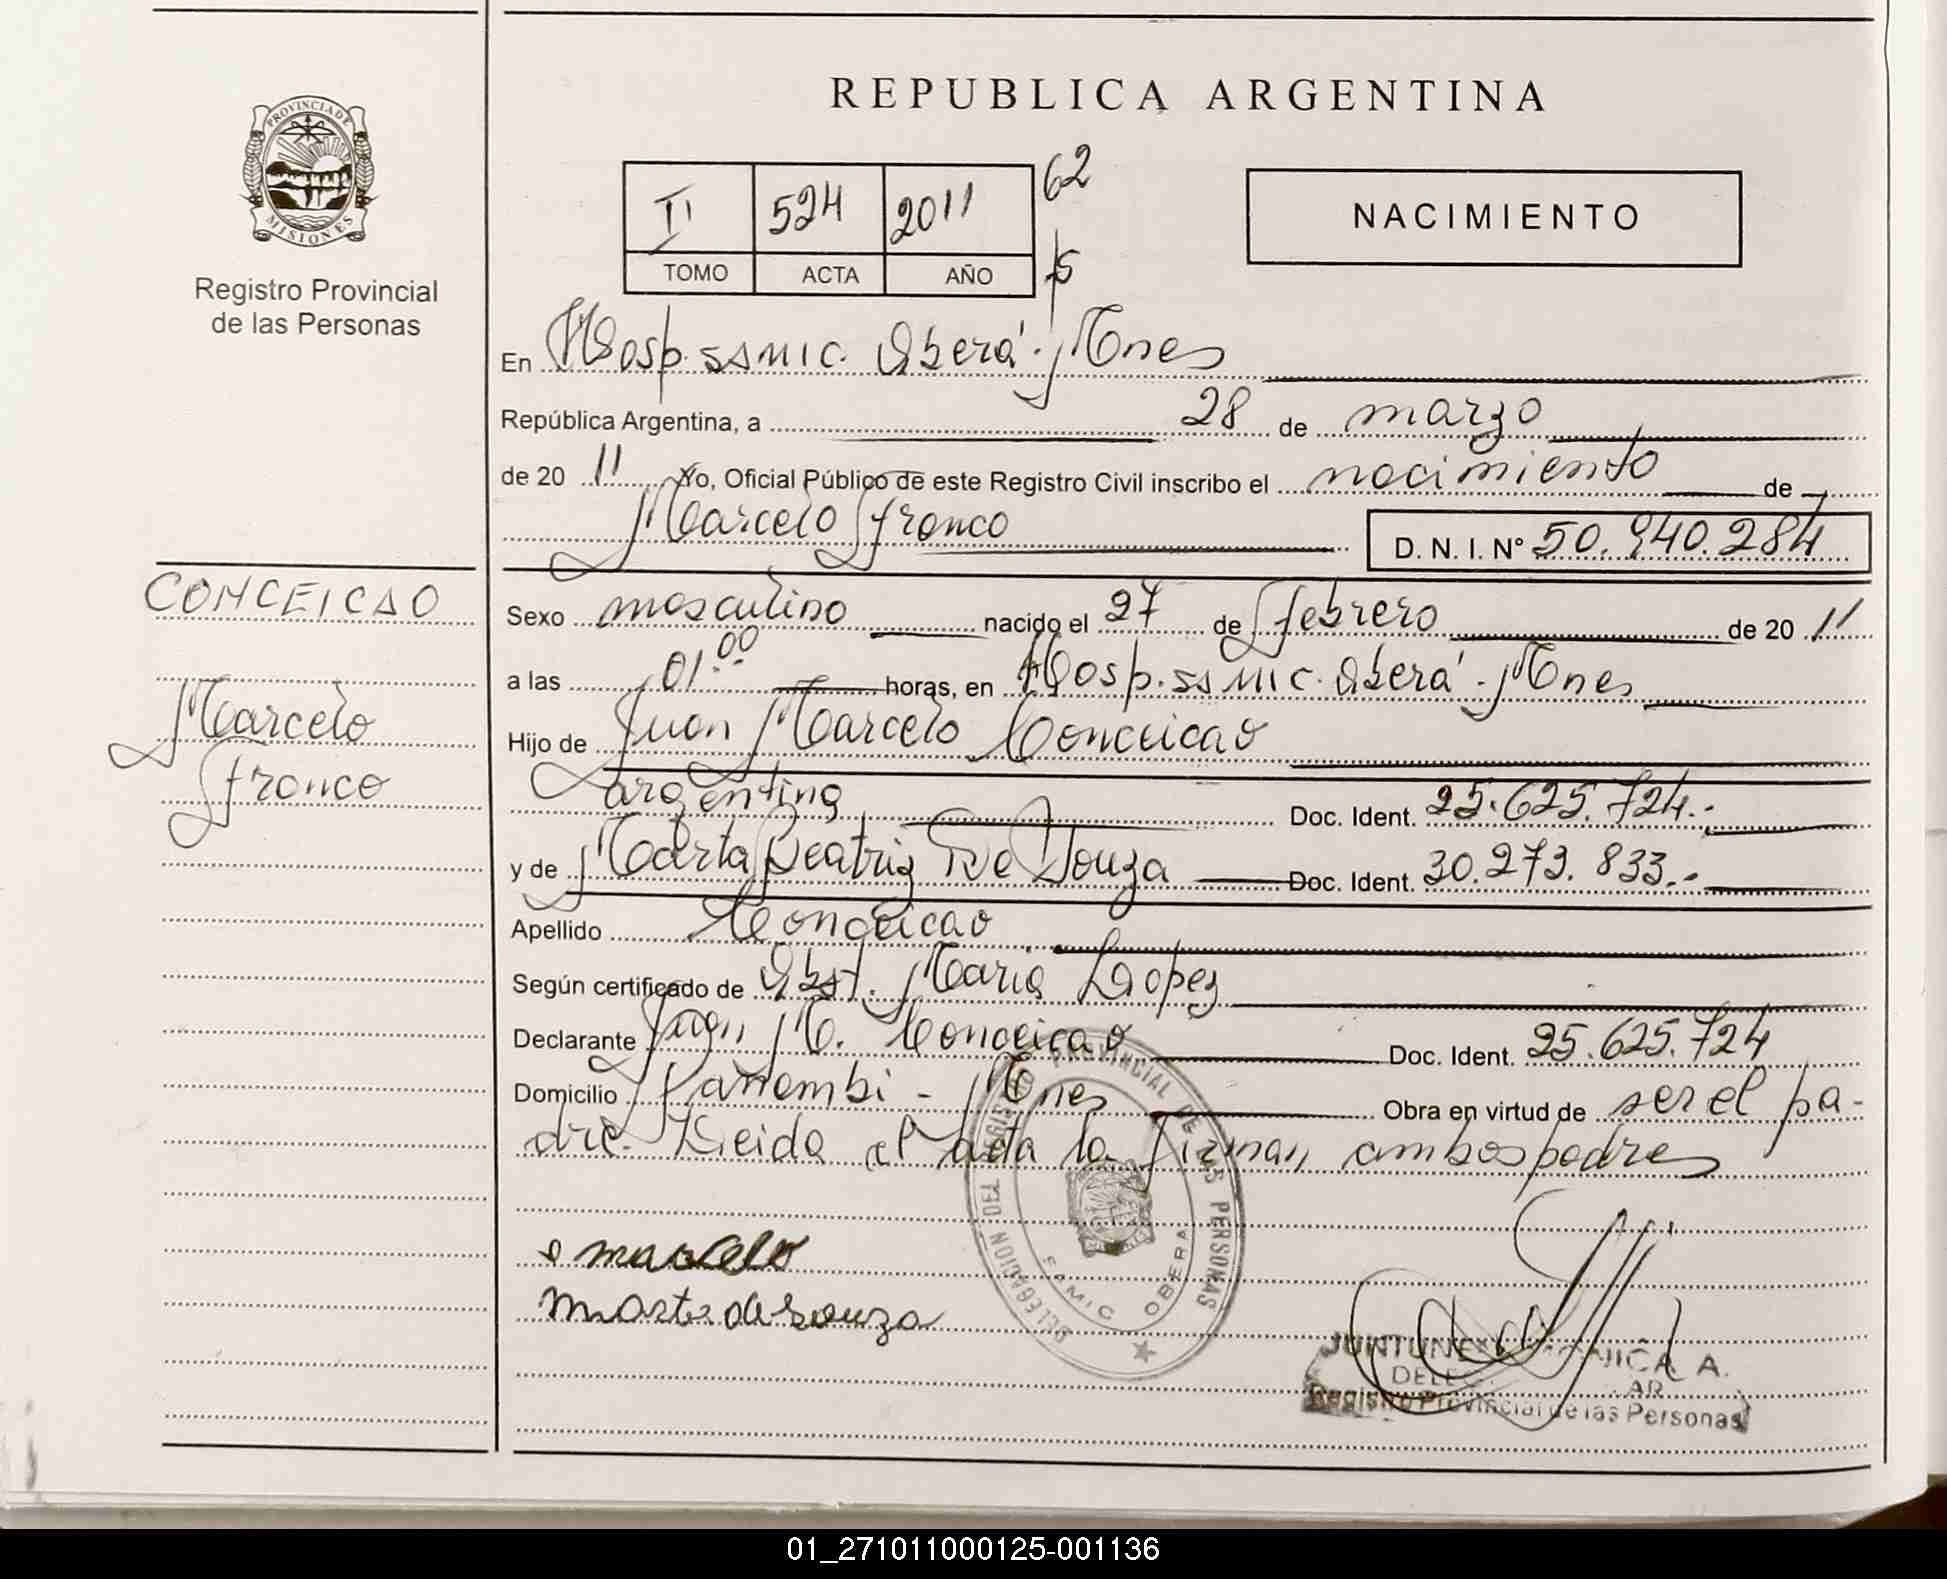 PROVINCIA DE
MISIONES
Registro Provincial
de las Personas
REPUBLICA ARGENTINA
II 524 2011 62
TOMO ACTA AÑO
NACIMIENTO
En Hosp. SAMIC. Oberá. Mnes
República Argentina, a 28 de marzo
de 20 11 Yo, Oficial Público de este Registro Civil inscribo el nacimiento de
Marcelo Franco
D. N. I. N° 50.940.284
CONCEICAO
Marcelo
Franco
Sexo masculino nacido el 27 de febrero de 20 11
a las 01:00 horas, en Hosp. SAMIC. Oberá. Mnes
Hijo de Juan Marcelo Conceicao
argentina Doc. Ident. 25.625.724.-
y de Marta Beatriz De Souza Doc. Ident. 30.273.833.-
Apellido Conceicao
Según certificado de Obst. Maria Lopez
Declarante Juan M. Conceicao Doc. Ident. 25.625.724
Domicilio Panambi - Mnes Obra en virtud de ser el pa-
dre. Leida el acta la firman ambos padres
DELEGACION DEL REGISTRO PROVINCIAL DE LAS PERSONAS
SAMIC OBERA
marcelo
Marta de Souza
A.
Registro Provincial de las Personas
01_271011000125-001136